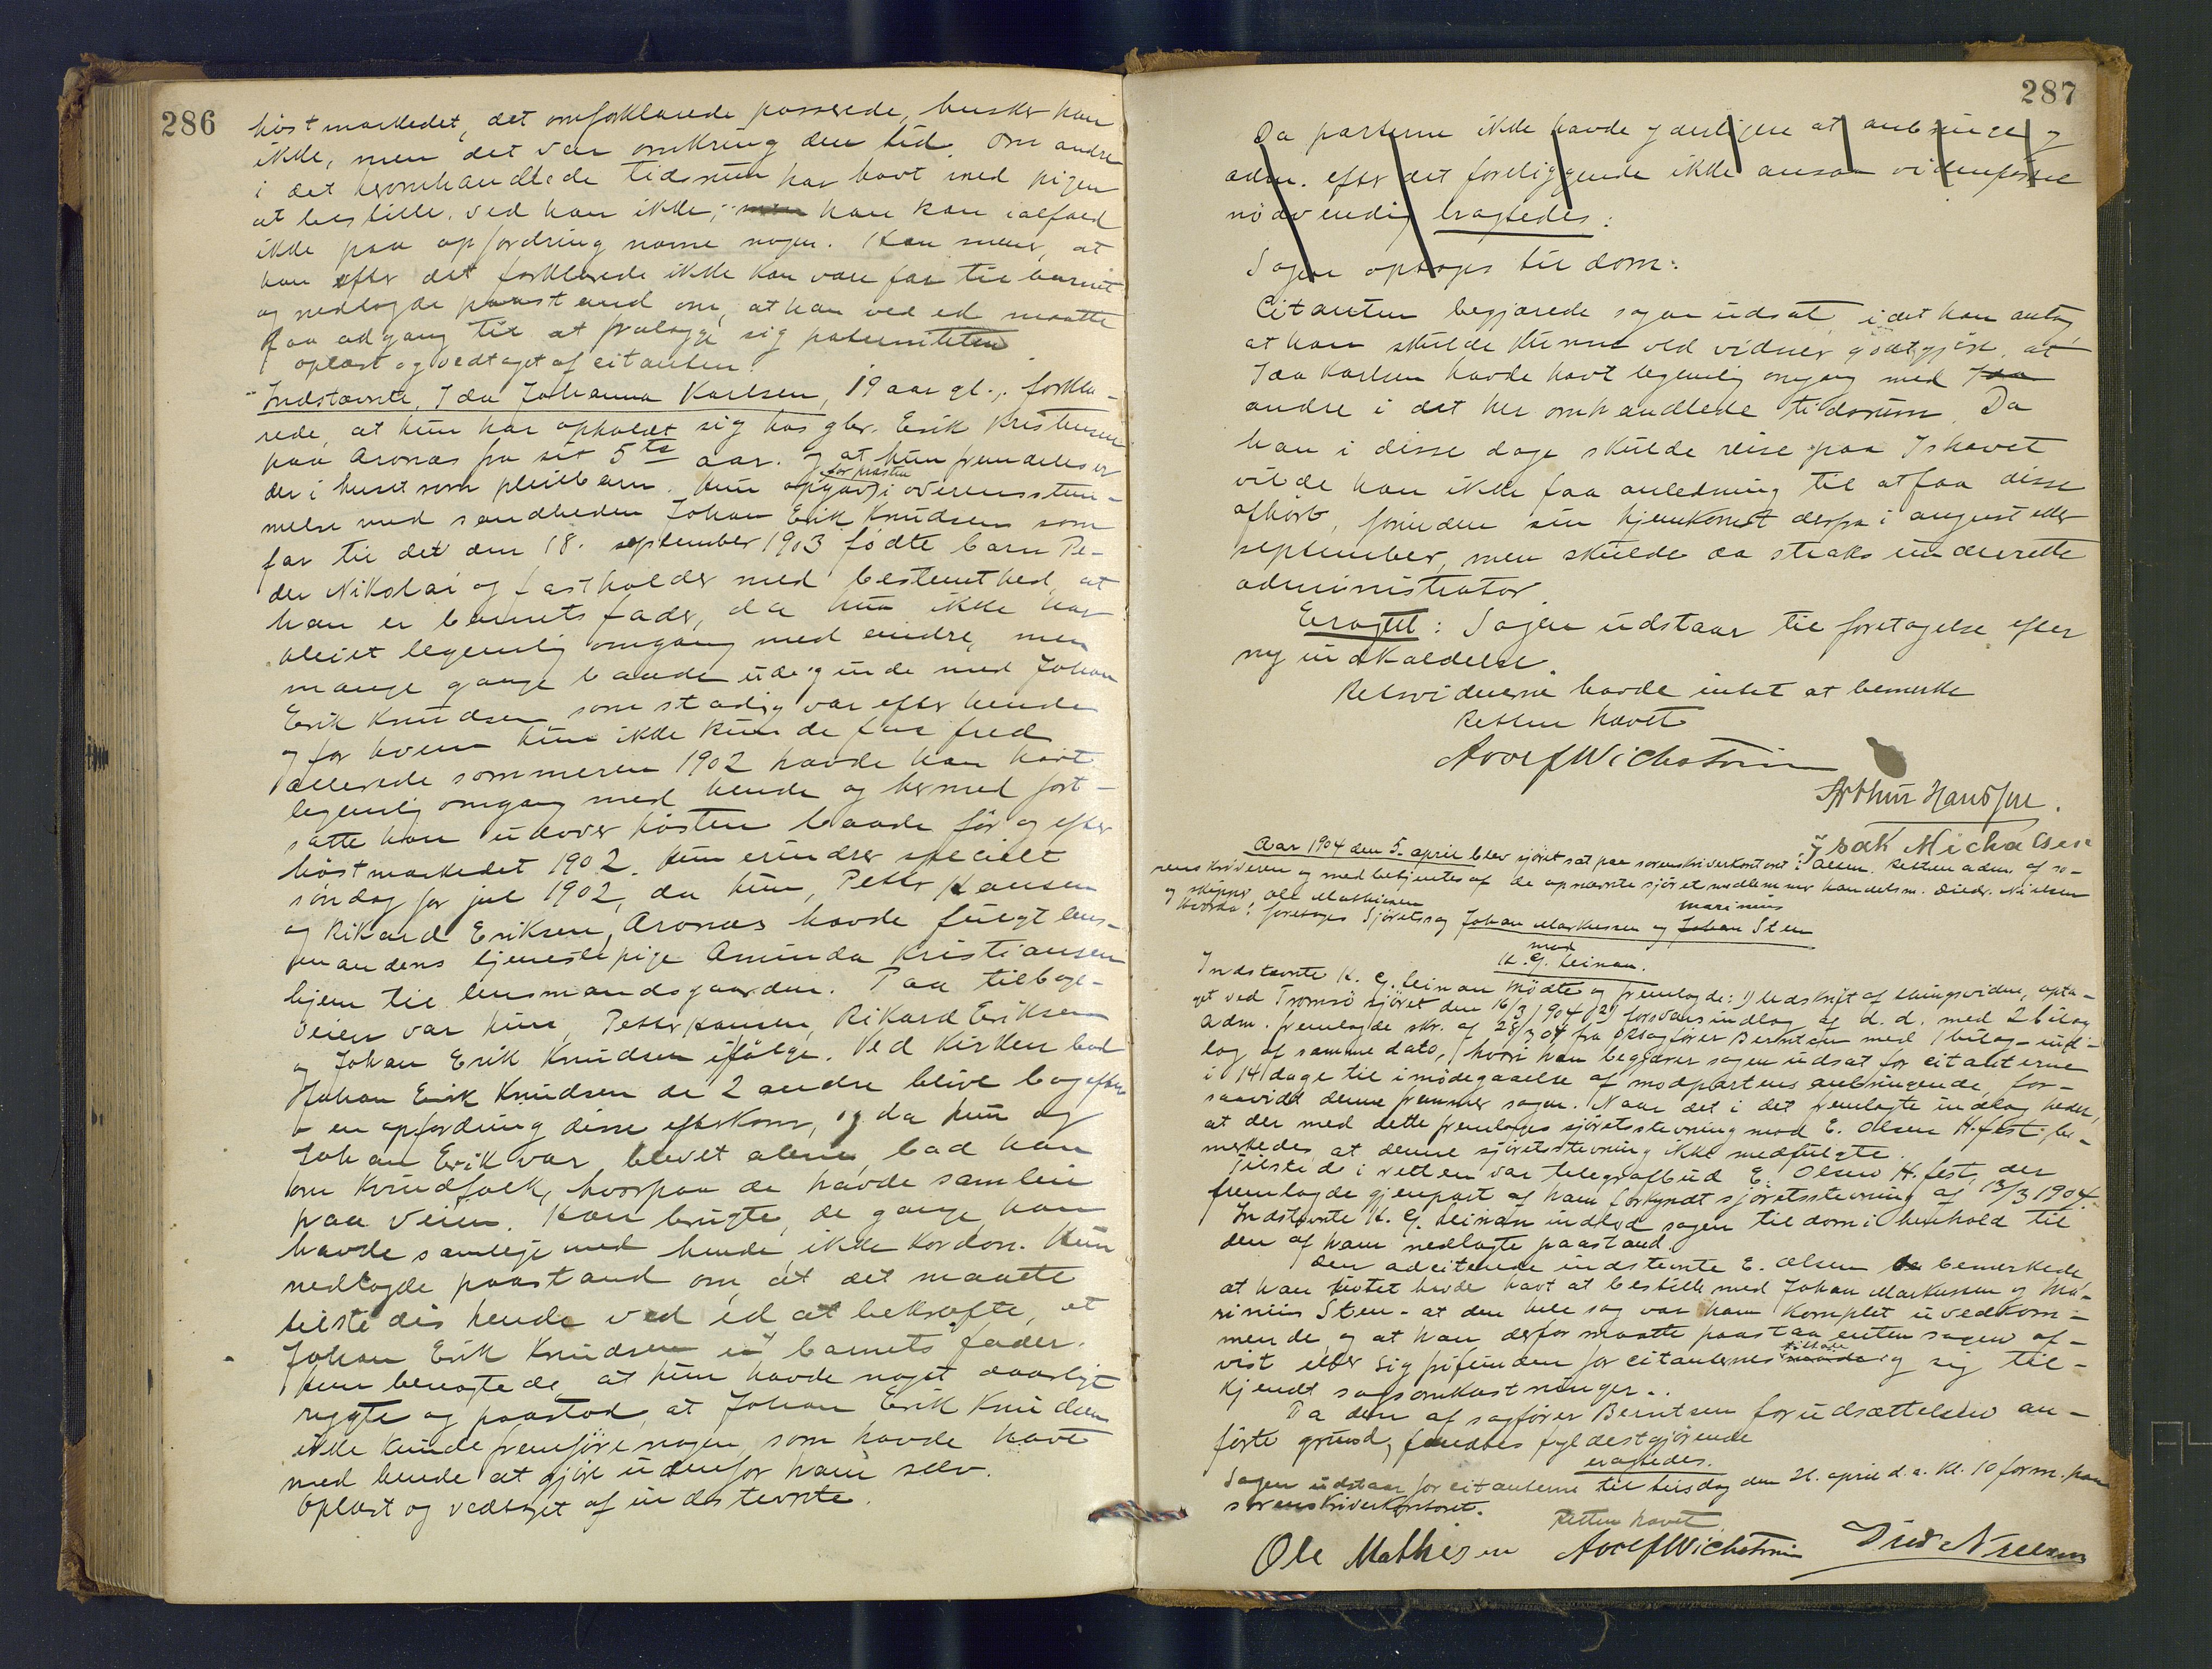 286
høstmarkedet, det omforklarede passerede, husker han
ikke, men det var omkring den tid. Om andre
i det heromhandlede tidsrum har havt med pigen
at bestille, ved han ikke, han kan ialfald
ikke paa opfordring nævne nogen. Han mener, at
han efter det forklarede ikke kan være far til barnet
og nedlagde paastand om, at han ved ed maatte
faa adgang til at fralægge sig paterniteten.
oplæst og vedtaget af citanten.
Indstævnte, Ida Johanna Karlsen, 19 aar gl., forkla-
rede, at hun har opholdt sig hos gbr. Erik Kristensen
paa Aronæs fra sit 5te aar. og at hun fremdeles er
der i huset som pleiebarn. Hun opgav for præsten i overensstem-
melse med sandheden Johan Erik Knudsen som
far til det den 18. september 1903 fødte barn Pe-
der Nikolai og fastholder med bestemthed, at
han er barnets fader, da hun ikke har
pleiet legemlig omgang med andre, men
mange gange baade ude og inde med Johan
Erik Knudsen, som stadig var efter hende
og for hvem hun ikke kunde faa fred
allerede sommeren 1902 havde han havt
legemlig omgang med hende og hermed fort-
satte han udover høsten baade før og efter
høstmarkedet 1902. Hun erindrer specielt
søndag før jul 1902, da hun, Peter Hansen
og Rikard Eriksen, Aronæs havde fulgt lens-
mandens tjenestepige Aminda Kristiansen
hjem til lensmandsgaarden. Paa tilbage-
veien var hun, Peter Hansen, Rikard Eriksen
og Johan Erik Knudsen ifølge. Ved kirken bad
Johan Erik Knudsen de 2 andre blive bagefter
en opfordring disse efterkom, og da hun og
Johan Erik var blevet alene, bad han
om kvindfolk, hvorpaa de havde samleie
paa veien. Han brugte, de gange han
havde samleje med hende, ikke kordon. Hun
nedlagde paastand om, at det maatte
tilstedes hende ved ed at bekræfte, at
Johan Erik Knudsen er barnets fader.
Hun benegtede, at hun havde noget daarligt
rygte og paastod, at Johan Erik Knudsen
ikke kunde fremføre nogen, som havde havt
med hende at gjøre udenfor ham selv.
Oplæst og vedtaget af indstevnte.
287
Da parterne ikke havde yderligere at anbringe og
adm. efter det foreliggende ikke ansaa vidneførsel
nødvendig eragtedes:
Sagen optages til dom:
Citanten begjærede sagen udsat, idet han antog,
at han skulde kunne ved vidner godtgjøre, at
Ida Karlsen havde havt legemlig omgang med Ida
andre i det her omhandlede tidsrum. Da
han i disse dage skulde reise paa Ishavet
vilde han ikke faa anledning til at faa disse
afhørt, førinden sin hjemkomst derfra i august eller
september, men skulde da straks underrette
administrator.
Eragtet: Sagen udstaar til foretagelse efter
ny indkaldelse.
Retsvidnerne havde intet at bemerke
Retten hævet
Adolf Wichstrøm
Arthur Hanssen.
Isak Michalsen
Aar 1904 den 5. april blev sjøret sat paa sorenskriverkontoret i Alten. Retten adm. af so-
renskriveren og medbetjentes af de opnævnte sjøretmedlemmer handelsm. Diedr. Nielsen
og skipper Ole Mathiesen
Hvorda: foretoges Sjøretssag Johan Markussen og Johan marinius Steen
mod
K. G. Leinan.
Indstevnte K. G. Leinan mødte og fremlagde: 1) Udskrift af thingsvidne, opta-
get ved Tromsø sjøret den 16/3 1904 (2) forsvarsindlæg af d. d. med 2 bilag
Adm. fremlagde skr. af 28/3 04 fra Oksagfører Berntsen med 1 bilag – ind-
læg af samme dato, hvori han begjærer sagen udsat for citanterne
i 14 dage til imødegaaelse af modpartens anbringende, for-
saavidt denne fremmer sagen. Naar det i det fremlagte indlæg heder,
at der med dette fremlægges sjøretsstevning mod E. Olsen H.fest, be-
merkedes, at denne sjøretsstevning ikke medfulgte.
Tilstede i retten var telegrafbud E. Olsen H.fest, der
fremlagde gjenpart af ham forkyndt sjøretsstevning af 13/3 1904.
Indstevnte K. G. Leinan indlod sagen til dom i henhold til
den af ham nedlagte paastand.
Den adciterede indstevnte E. Olsen bemerkede
at han intet havde havt at bestille med Johan Markussen og Ma-
rinius Steen – at den hele sag var ham komplet uvedkom-
mende og at han derfor maatte paastaa enten sagen af-
vist eller sig frifunden for citanternes tiltale og sig til-
kjendt sagsomkostninger.
Da den af sagfører Berntsen for udsættelsen an-
førte grund, fandtes fyldestgjørende
eragtedes.
Sagen udstaar for citanterne til tirsdag den 26. april d. a. kl. 10 form. paa
sorenskriverkontoret.
Retten hævet
Ole Mathisen Adolf Wichstrøm Died Nielsen